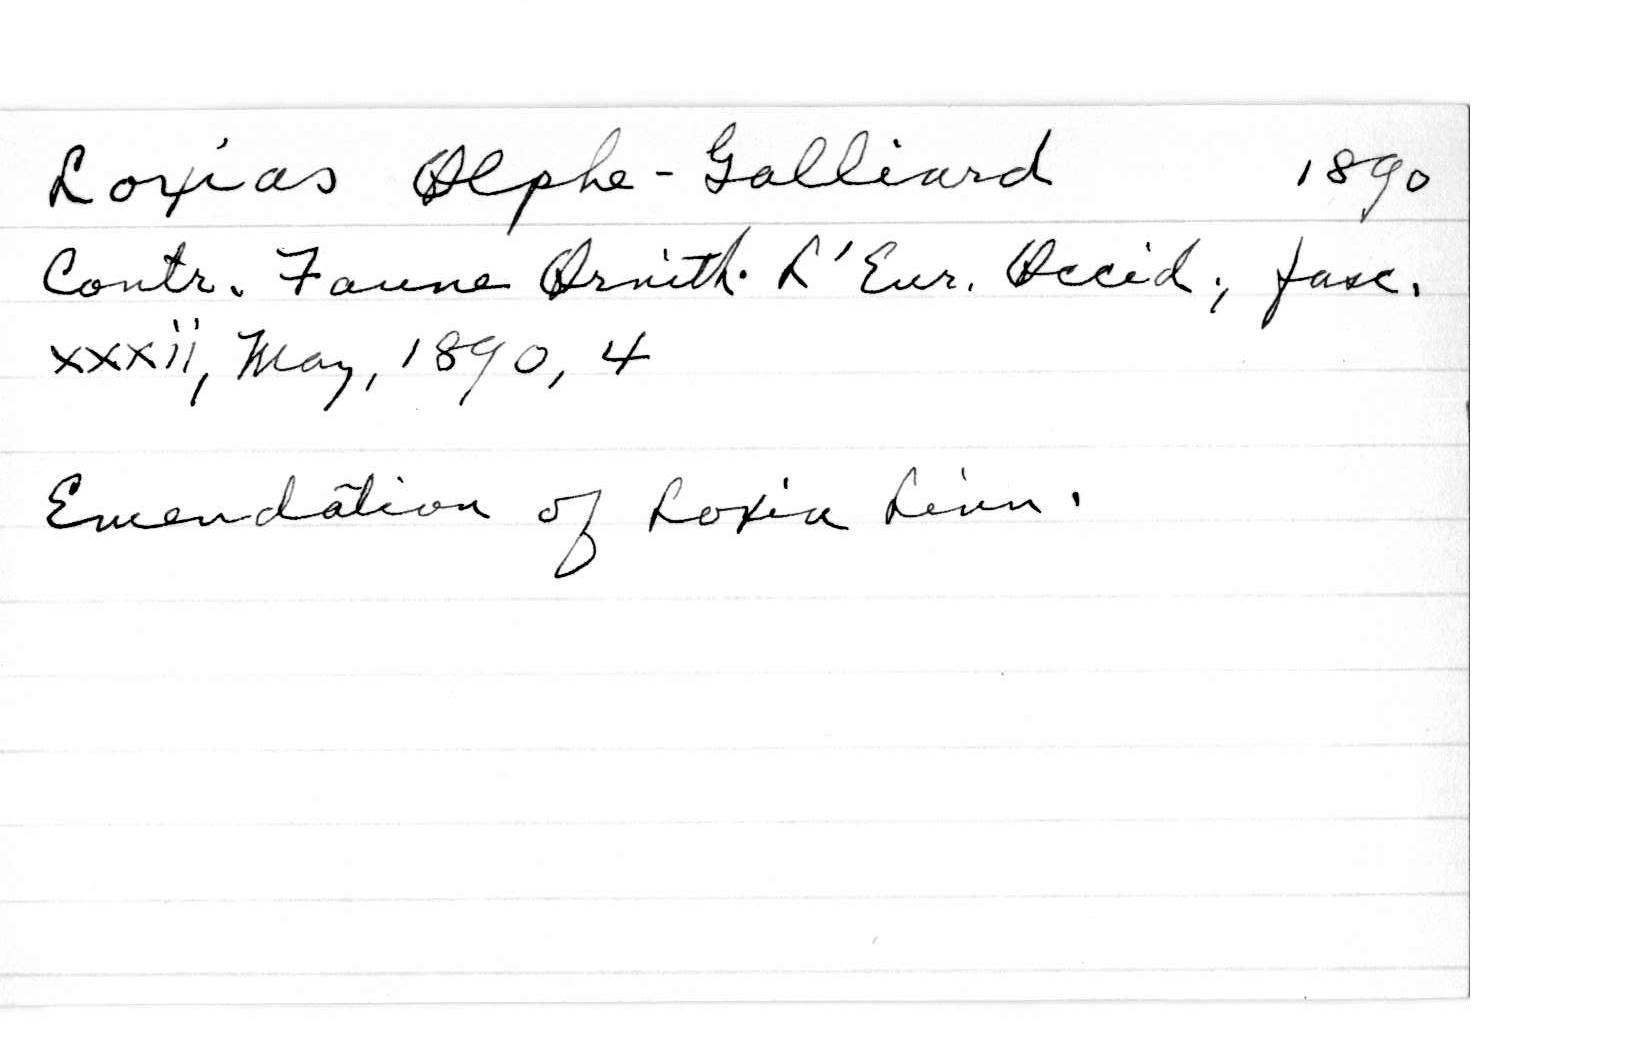 Loxias Alphe-Galliard 1890
Contr. Faune Ornith. L'Eur. Occid., fasc.
xxxii, May, 1890, 4
Emendation of Loxia Linn.